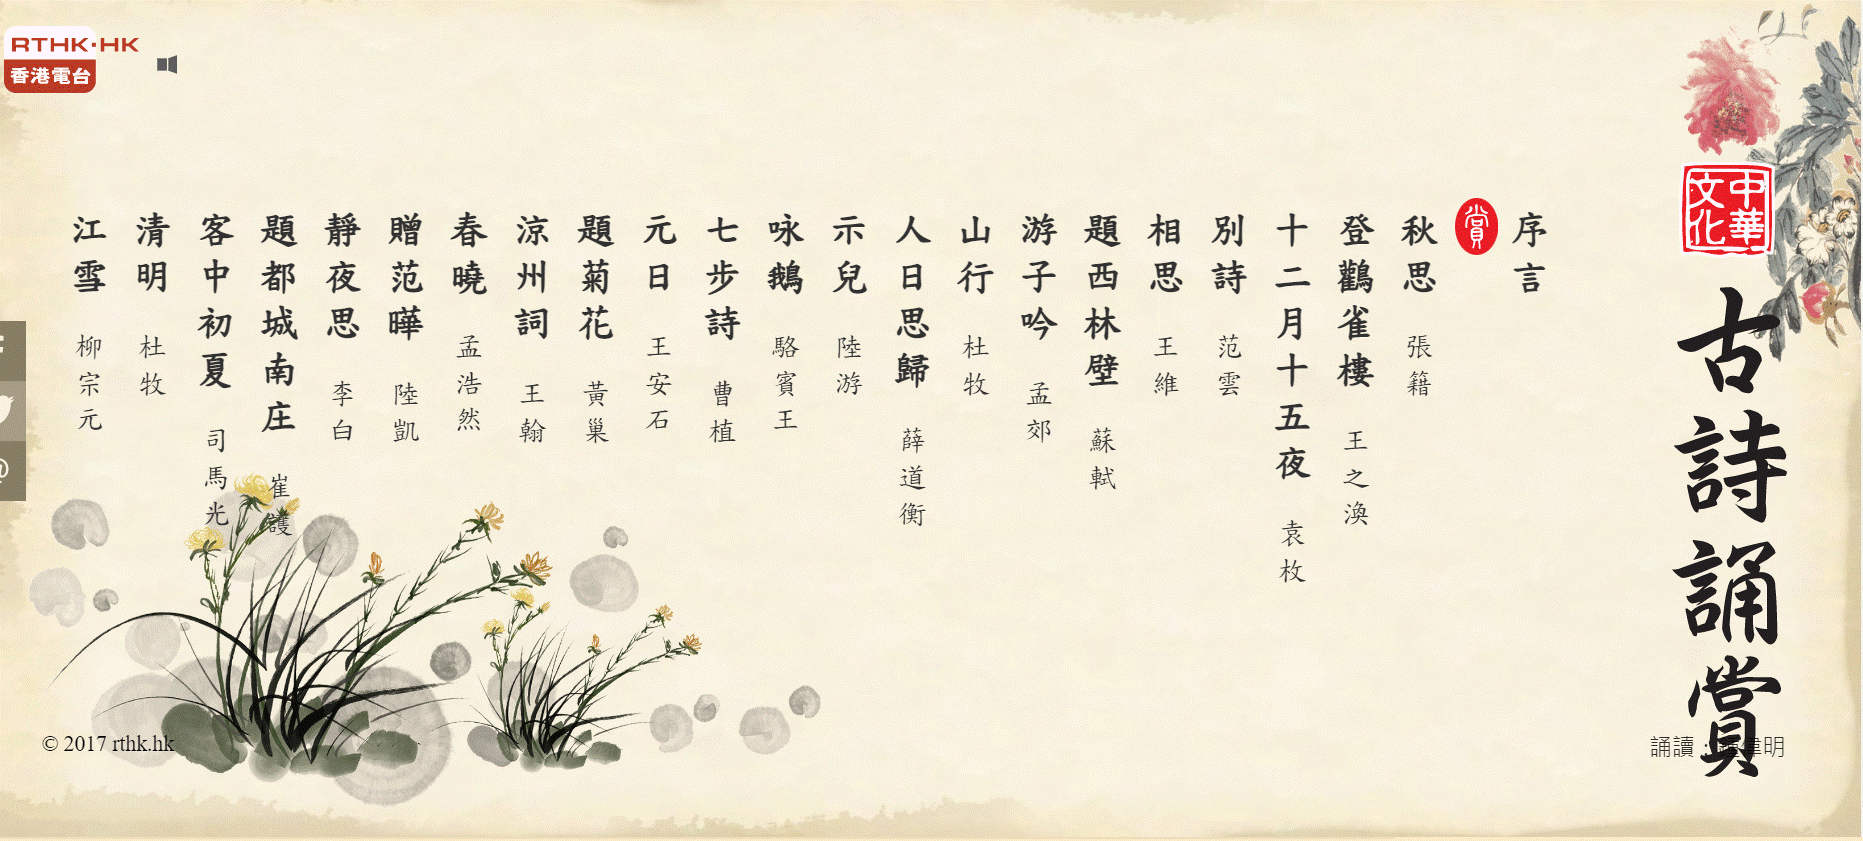 RTHK·HK
香港電台
中華
文化
古詩誦賞
誦讀：鍾偉明
序言
賞
秋思 張籍
登鸛雀樓 王之渙
十二月十五夜 袁枚
別詩 范雲
相思 王維
題西林壁 蘇軾
游子吟 孟郊
山行 杜牧
人日思歸 薛道衡
示兒 陸游
咏鵝 駱賓王
七步詩 曹植
元日 王安石
題菊花 黃巢
涼州詞 王翰
春曉 孟浩然
贈范曄 陸凱
靜夜思 李白
題都城南庄 崔護
客中初夏 司馬光
清明 杜牧
江雪 柳宗元
© 2017 rthk.hk